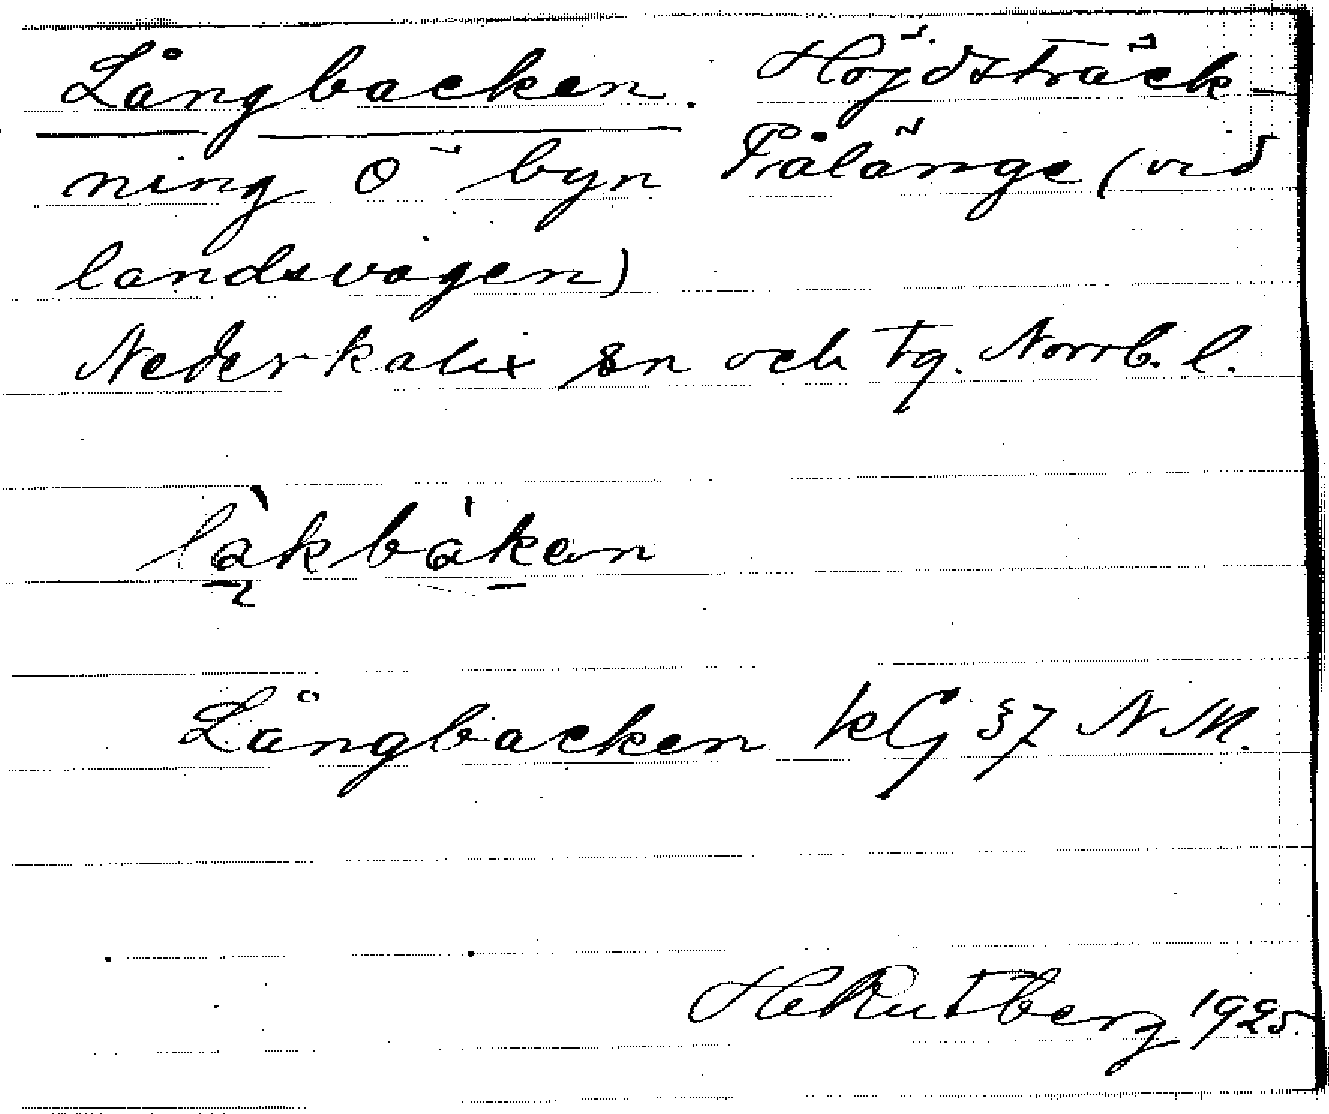 Långbacken. Höjdsträck-
ning Ö byn Pålänge (vid
landsvägen)
Nederkalix sn och tg. Norrb. l.
låkbåken
Långbacken kG §7 NM.
HeRutberg 1925.